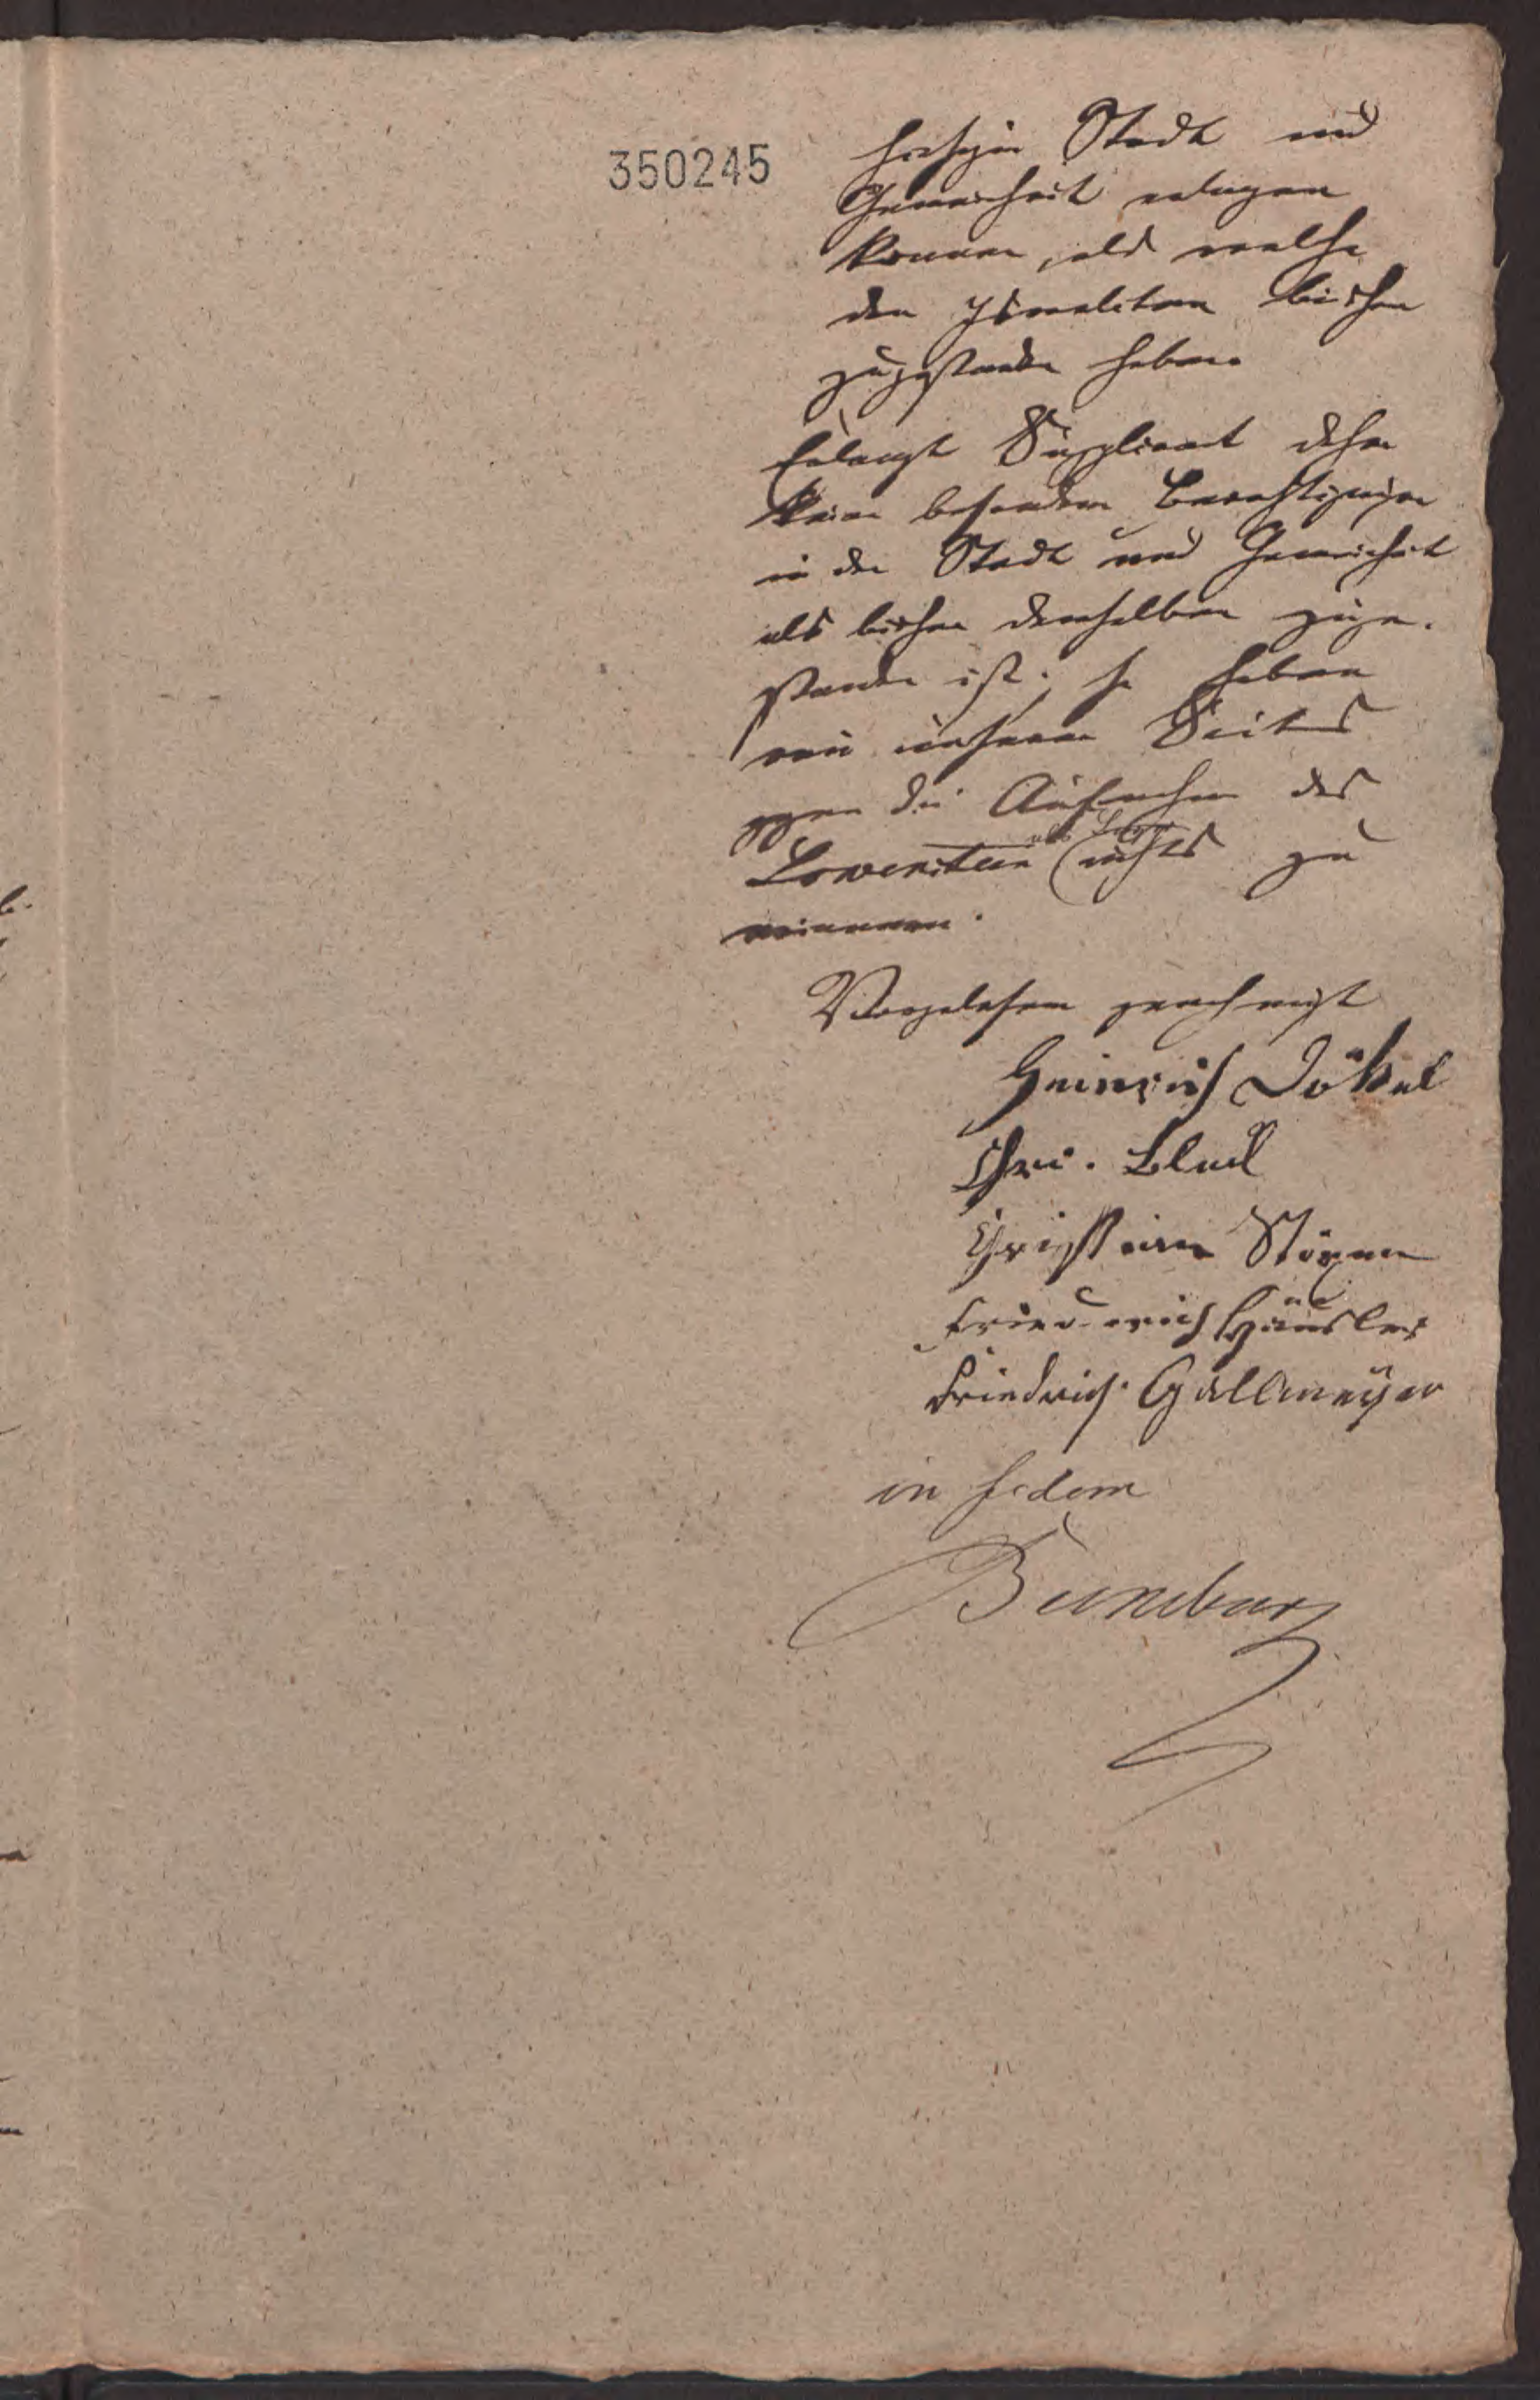 350245
hiesigen Stadt und
Gemeinheit erlangen
können, als welche
den Israeliten bisher
zugestanden haben.
Erlangt Supplicant daher
keine besondern Berechtigungen
in der Stadt und Gemeinheit
als bisher denselben zuge-
standen ist, so haben
wir unserer Seits
gegen die Aufnahme des
Lowenstein nichts zu
erinnern.
Vorgelesen genehmigt
Heinrich Dökel
Chri. Block
Christian Störmer
Friederich Häusler
Friedrich Gallmeyer
in fidem